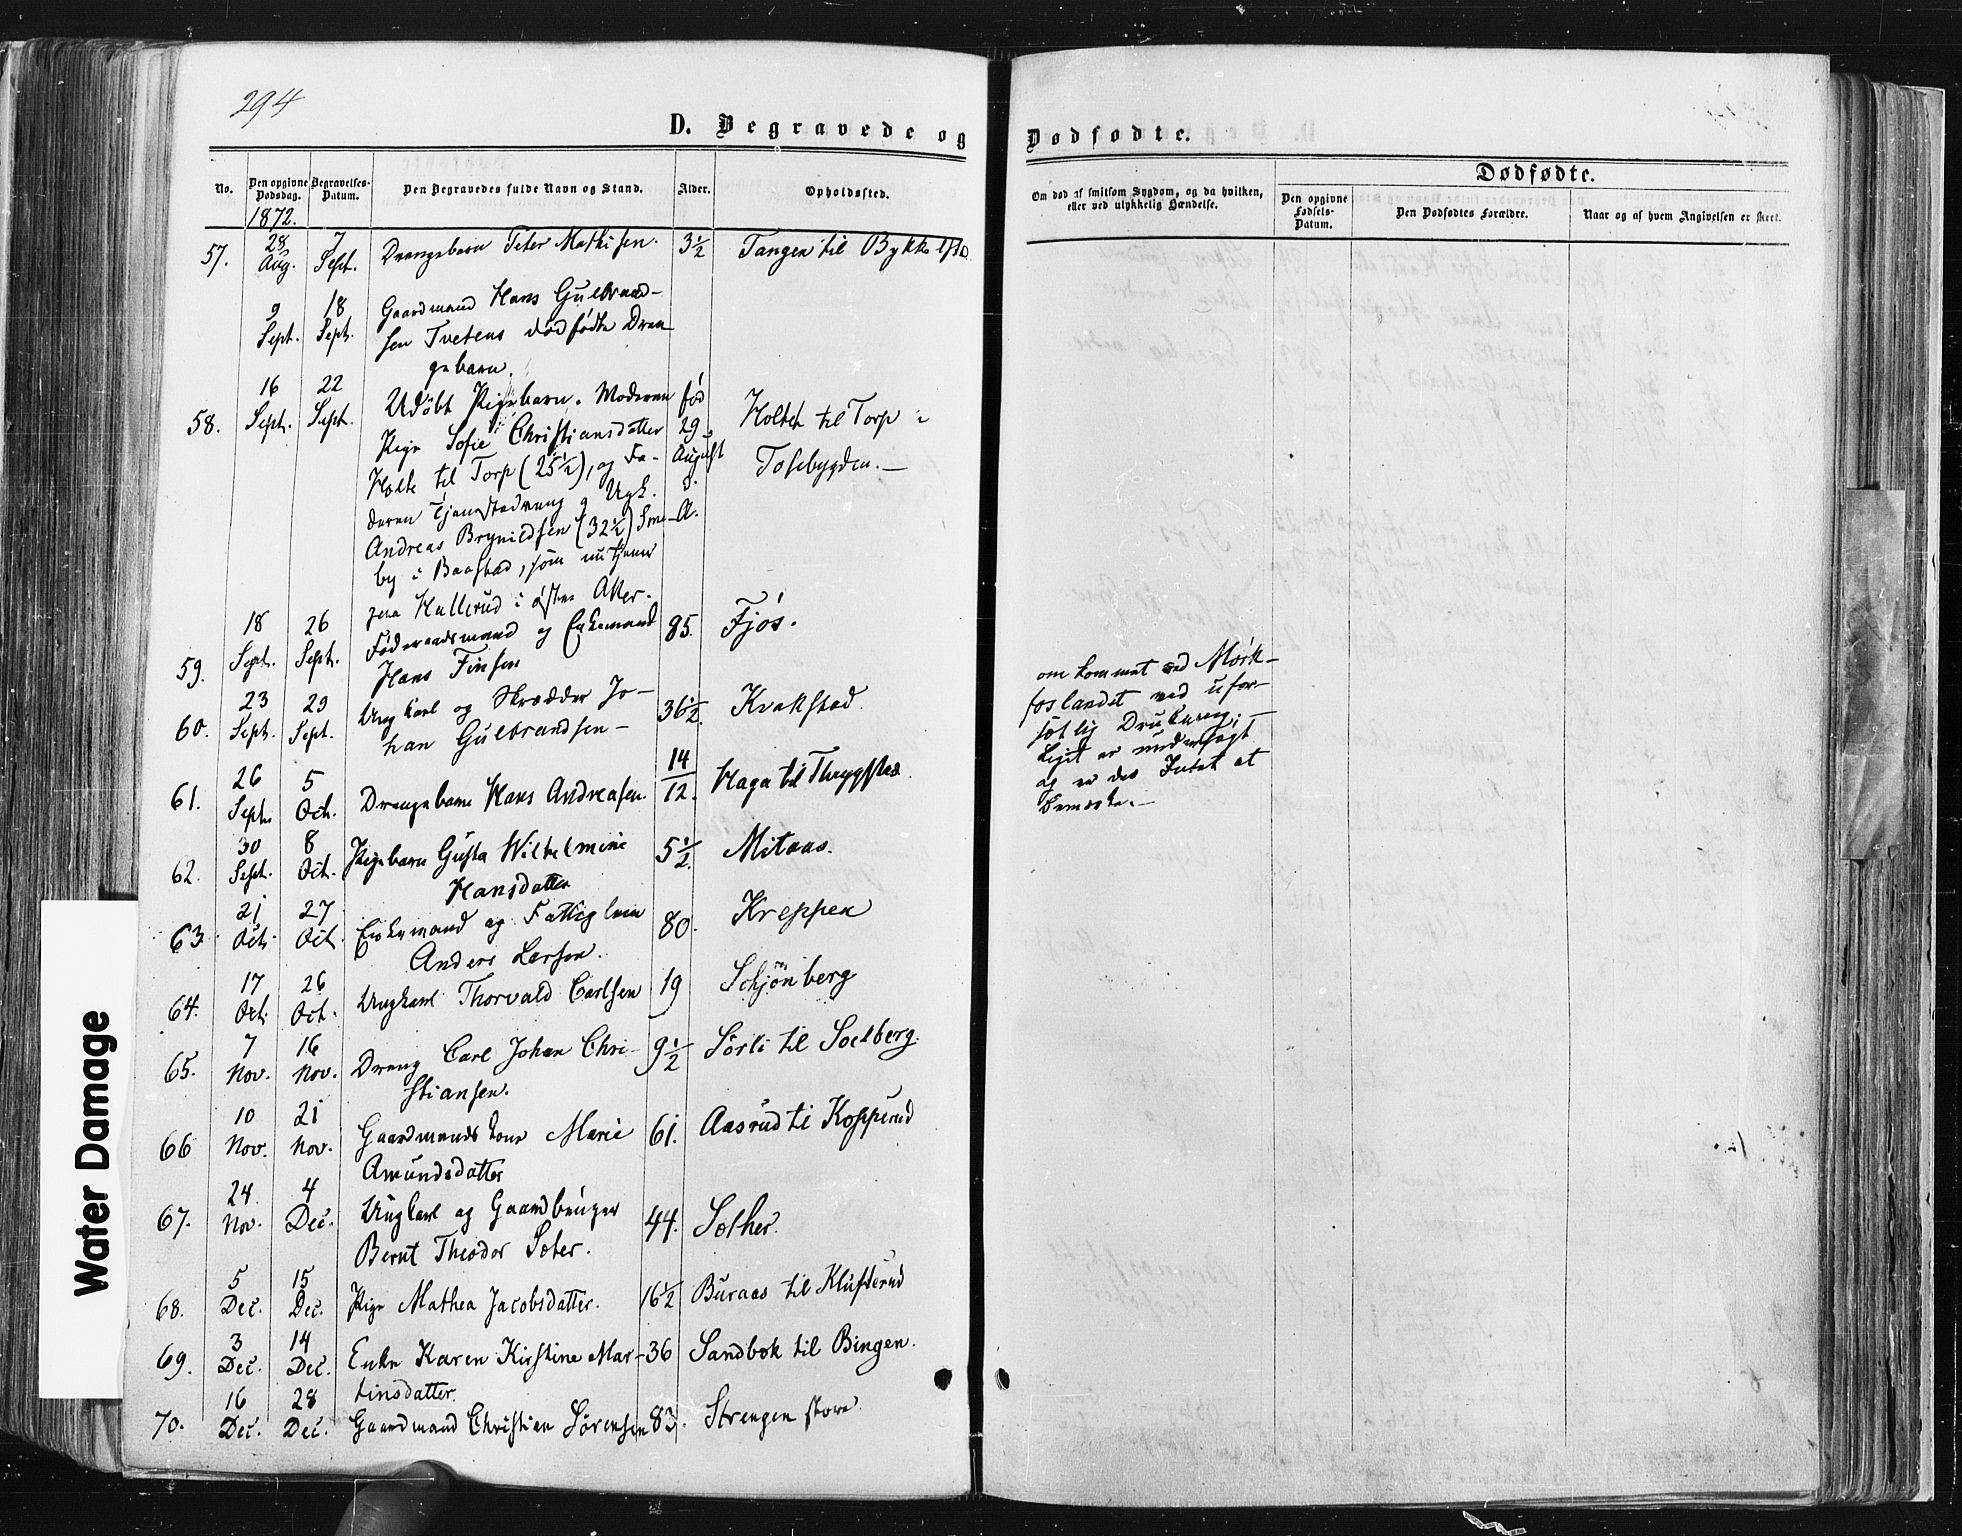 294
D. Begravede og
Dødfødte.
No.
Den opgivne Dødsdag.
Begravelses-Datum.
Den Begravedes fulde Navn og Stand.
Alder.
Opholdssted.
Om død af smitsom Sygdom, og da hvilken, eller ved ulykkelig Hændelse.
Dødfødte.
Den opgivne Fødsels-Datum.
Den Dødfødtes Forældre.
Naar og af hvem Angivelsen er skeet.
1872.
57. 28 Aug. 7 Sept. Drengebarn Peter Mathisen. 3½ Tangen til
9 Sept. 18 Sept. Gaardmand Hans Gulbrand-
sen Tvetens dødfødte Dren
gebarn.
58. 16 Sept. 22 Sept. Udøbt Pigebarn. Moderen fød
Pige Sofie Christiansdatter 29 Holtet til Torp i
Holte til Torp (25½), og Fa- August Tosebygden.—
deren Tjenestedreng og Ugk. d.
Andreas Brynildsen (32½) Sme- A.
by i Baastad, som nu tjener
paa Hallerud i østre Aker.
59. 18 Sept. 26 Sept. Føderaadsmand og Enkemand 85. Fjøs.
Hans Finsen
60. 23 Sept. 29 Sept. Ungkarl og Skrædder Jo- 36½. Kvakstad.
han Gulbrandsen—
omkommet ved Mørk-
foslandet ved ufor-
sætlig Drukning.—
Liget er undersøgt
og er des Intet at
bemærke.—
61. 26 Sept. 5 Oct. Drengebarn Hans Andreasen. 14/12. Haga til Thrygstad.
62. 30 Sept. 8 Oct. Pigebarn Gusta Wilhelmine 5½. Mitaas.
Hansdatter
63. 21 Oct. 27 Oct. Enkemand og Fattiglem 80. Kreppen
Anders Larsen.
64. 17 Oct. 26 Oct. Ungkarl Thorvald Carlsen 19 Schjønberg
65. 7 Nov. 16 Nov. Dreng Carl Johan Chri- 9½ Sørli til Solberg.
stiansen.
66 10 Nov. 21 Nov. Gaardmandskone Marie 61. Aasrud til Kopperud
Amundsdatter
67. 24. Nov. 4 Dec. Ungkarl og Gaardbruger 44. Sother.
Bernt Theodor Soter.
68. 5 Dec. 15 Dec. Pige Mathea Jacobsdatter. 16½ Buraas til Klufterud
69. 3 Dec. 14 Dec. Enke Karen Kirstine Mar- 36 Sandbok til Bingen.
tinsdatter.
70. 16 Dec. 28 Dec. Gaardmand Christian Sørensen 83. Strengen store.
Water Damage